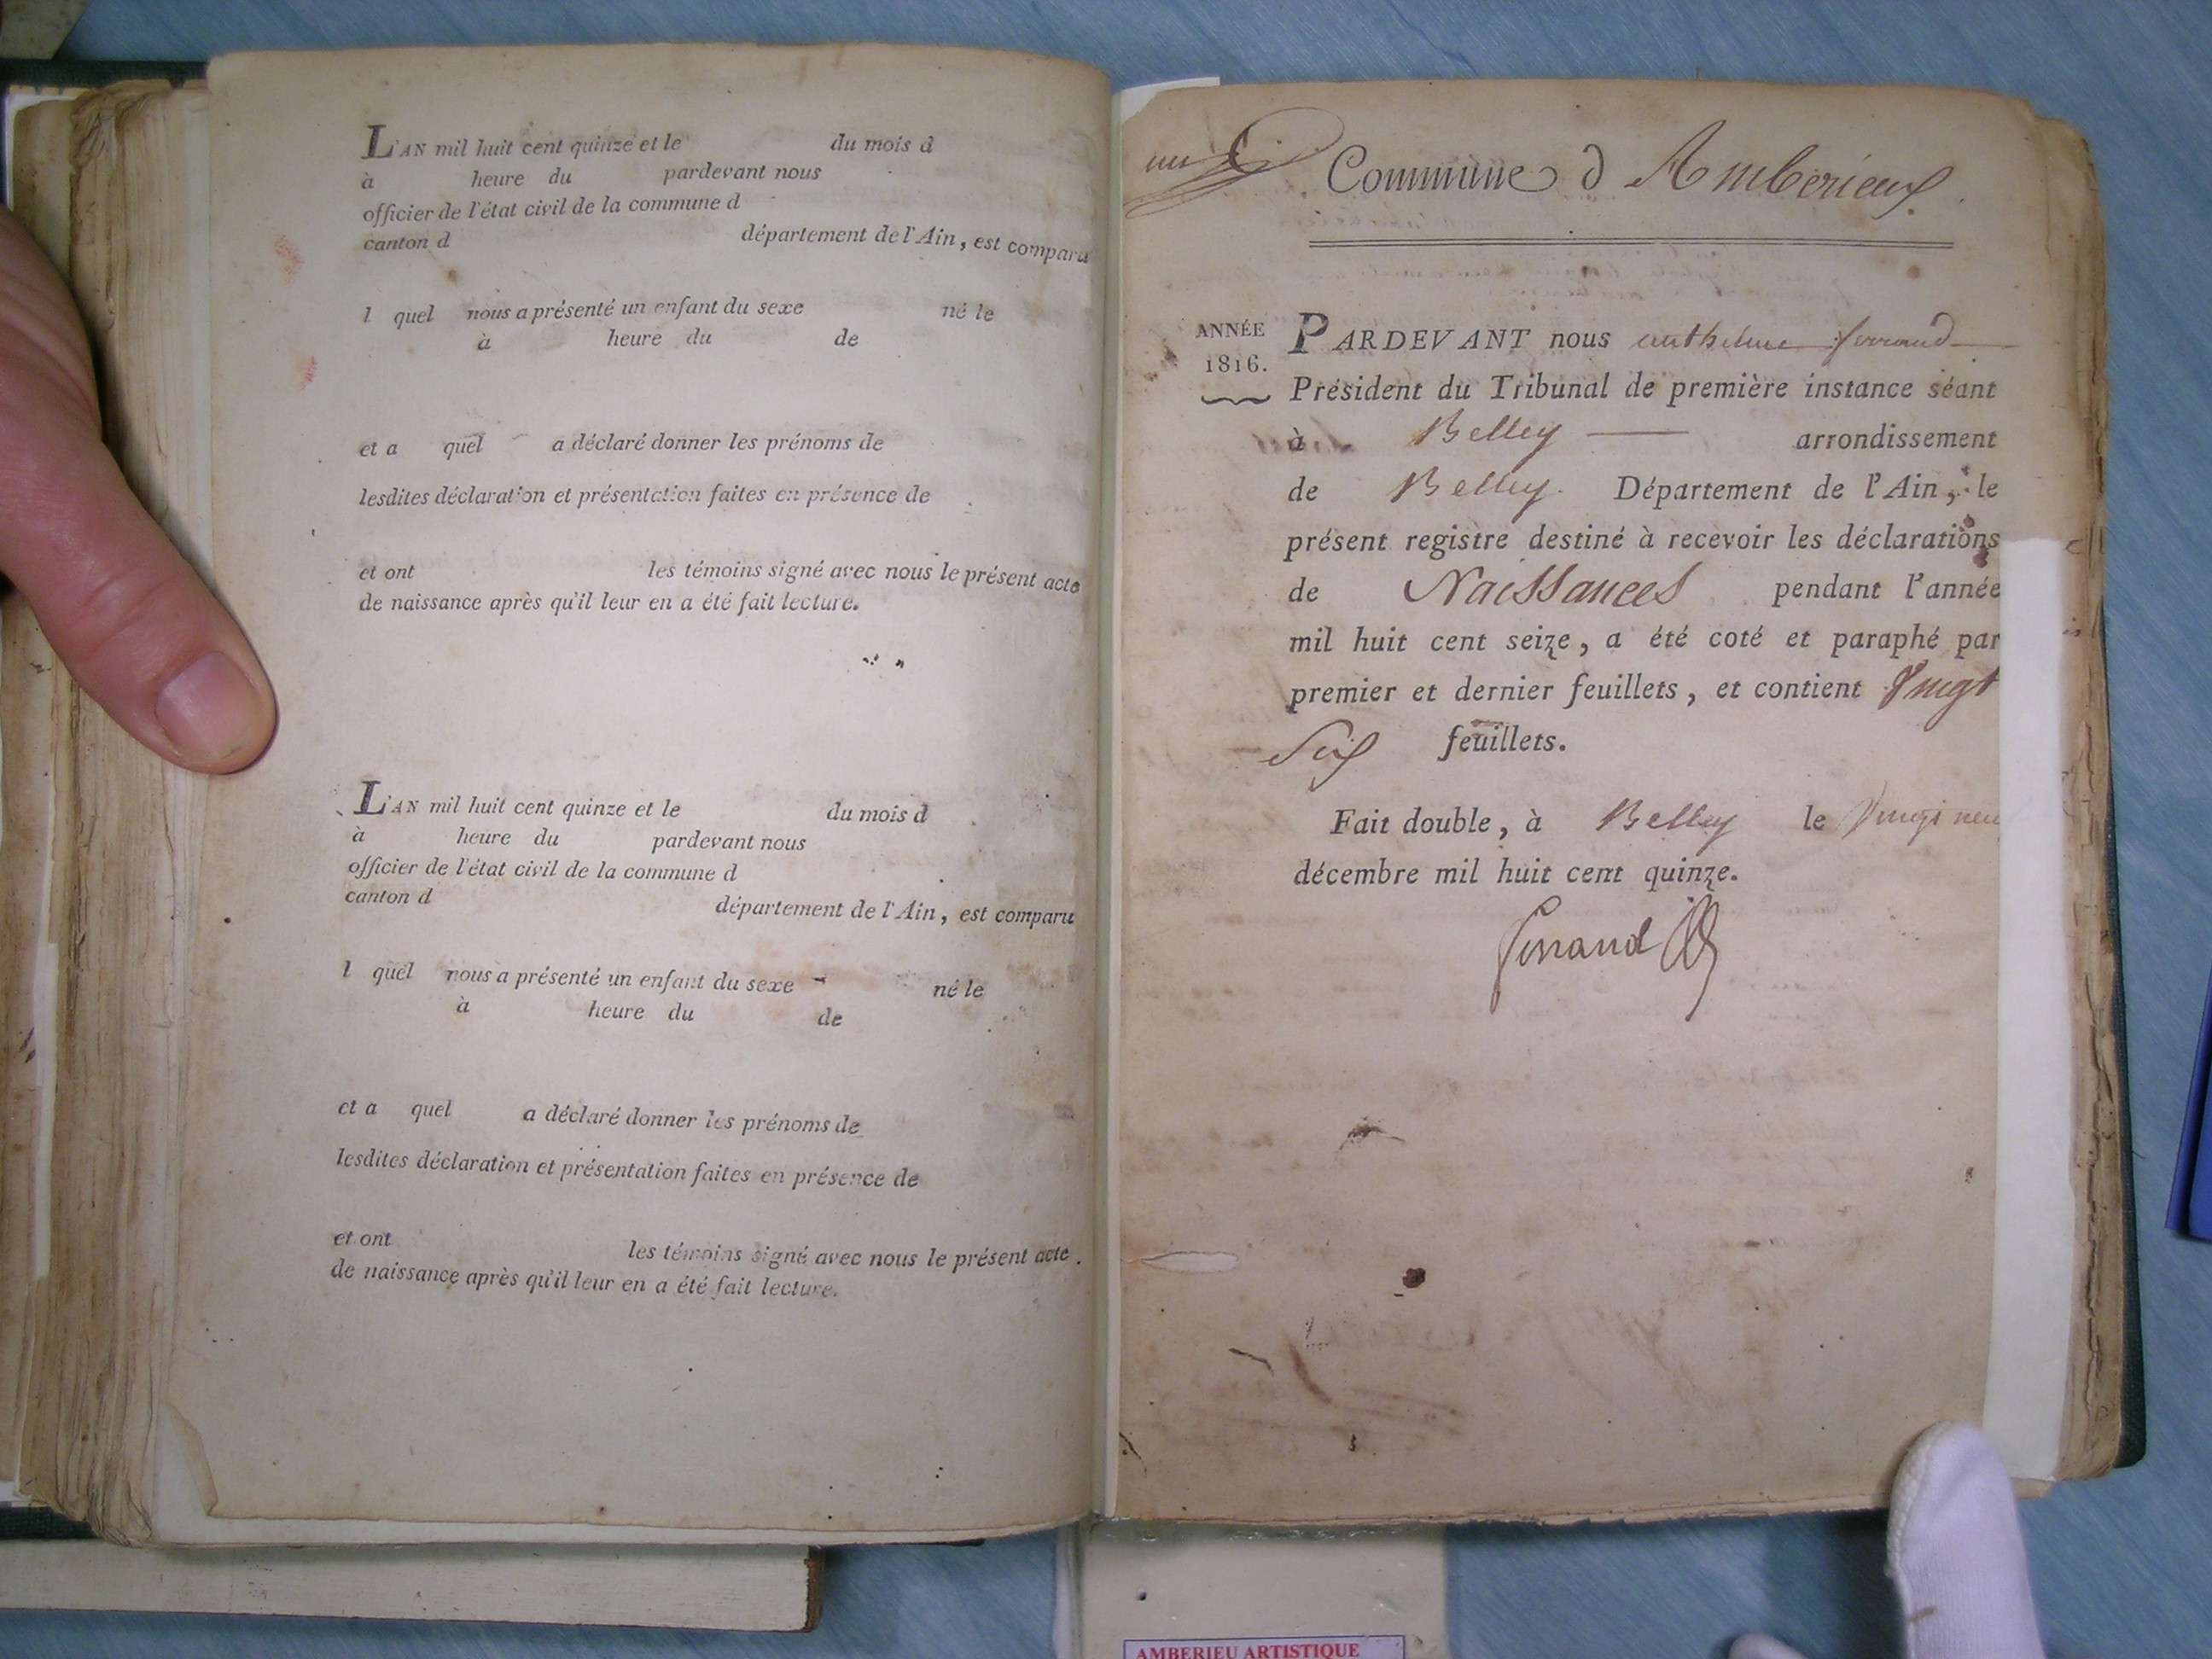 L'AN mil huit cent quinze et le du mois d
à heure du pardevant nous
officier de l'état civil de la commune d
canton d département de l'Ain, est comparu
l quel nous a présenté un enfant du sexe né le
à heure du de
et a quel a déclaré donner les prénoms de
lesdites déclaration et présentation faites en présence de
et ont les témoins signé avec nous le présent acte
de naissance après qu'il leur en a été fait lecture.
L'AN mil huit cent quinze et le du mois d
à heure du pardevant nous
officier de l'état civil de la commune d
canton d département de l'Ain, est comparu
l quel nous a présenté un enfant du sexe né le
à heure du de
et a quel a déclaré donner les prénoms de
lesdites déclaration et présentation faites en présence de
et ont les témoins signé avec nous le présent acte.
de naissance après qu'il leur en a été fait lecture.
un
Commune d Amberieux
ANNÉE
1816.
PARDEVANT nous anthelme ferrand
Président du Tribunal de première instance séant
à Belley arrondissement
de Belley. Département de l'Ain, le
présent registre destiné à recevoir les déclarations
de Naissances pendant l'année
mil huit cent seize, a été coté et paraphé par
premier et dernier feuillets, et contient Vingt
Six feuillets.
Fait double, à Belley le Vingt neu
décembre mil huit cent quinze.
ferrand
AMBERIEU ARTISTIQUE